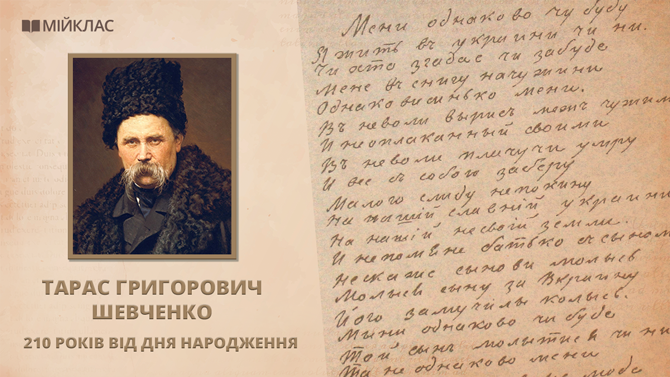 МІЙКЛАС
ТАРАС ГРИГОРОВИЧ
ШЕВЧЕНКО
210 РОКІВ ВІД ДНЯ НАРОДЖЕННЯ
Мени однаково чи буду
Я жить въ украини чи ни.
Чи хто згадає чи забуде
Мене въ снигу на чужини
Однаковисинько мени.
Въ неволи вырисъ межъ чужими
И неоплаканный своими
Въ неволи плачучи умру
И все съ собою заберу
Малого слиду непокину
На нашій славній украини
На нашій несвоій земли.
И непомъяне батько съ сыномъ
Нескаже сынови молысь
Молысь сыну за Вкраину
Його замучилы колысь.
Мини однаково чи буде
Той сынъ молытися чи ни
Та не однаково мени